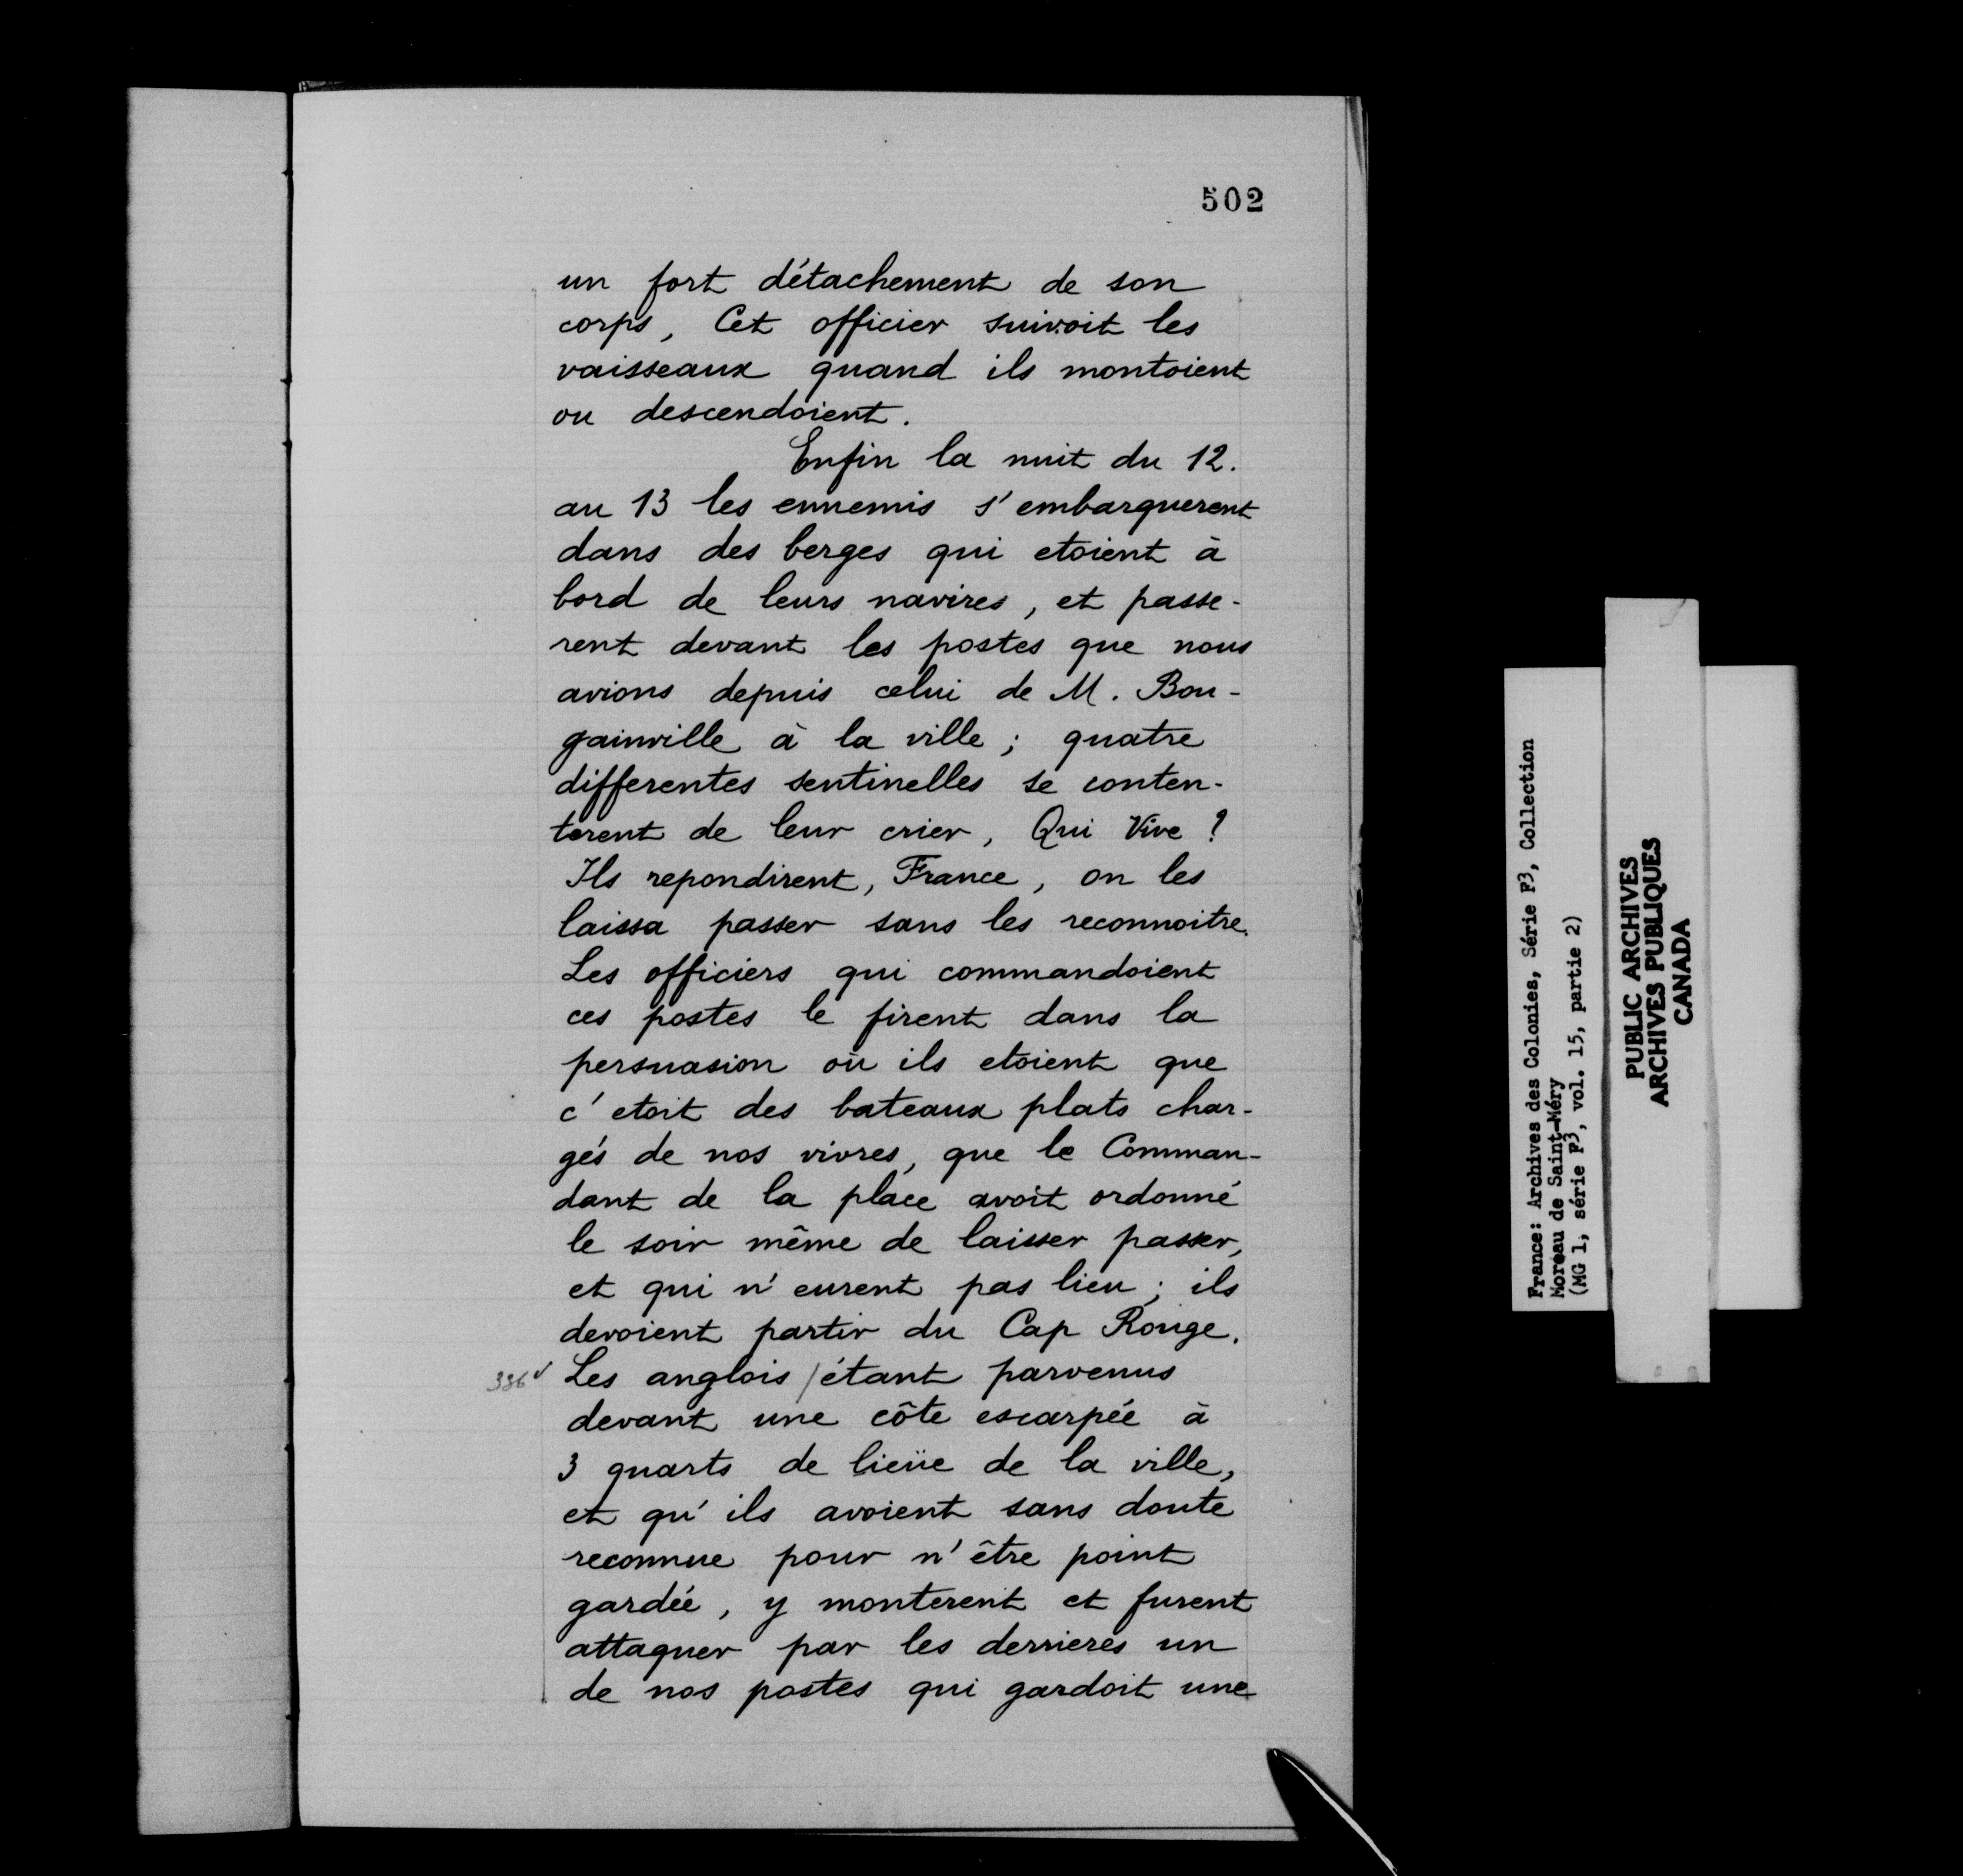 502
un fort détachement de son
corps, Cet officier suivoit les
vaisseaux quand ils montoient
ou descendoient.
Enfin la nuit du 12.
au 13 les ennemis s'embarquerent
dans des berges qui etoient à
bord de leurs navires, et passe-
rent devant les postes que nous
avions depuis celui de M. Bou-
gainville à la ville; quatre
differentes sentinelles se conten-
terent de leur crier, Qui Vive?
Ils repondirent, France, on les
laissa passer sans les reconnoitre.
Les officiers qui commandoient
ces postes le firent dans la
persuasion où ils etoient que
c'etoit des bateaux plats char-
gés de nos vivres, que le Comman-
dant de la place avoit ordonné
le soir même de laisser passer,
et qui n'eurent pas lieu; ils
devoient partir du Cap Rouge.
336v Les anglois /étant parvenus
devant une côte escarpée à
3 quarts de lieüe de la ville,
et qu'ils avoient sans doute
reconnue pour n'être point
gardée, y monterent et furent
attaquer par les derrieres un
de nos postes qui gardoit une
France: Archives des Colonies, Série F3, Collection
Moreau de Saint-Méry
(MG 1, série F3, vol. 15, partie 2)
PUBLIC ARCHIVES
ARCHIVES PUBLIQUES
CANADA